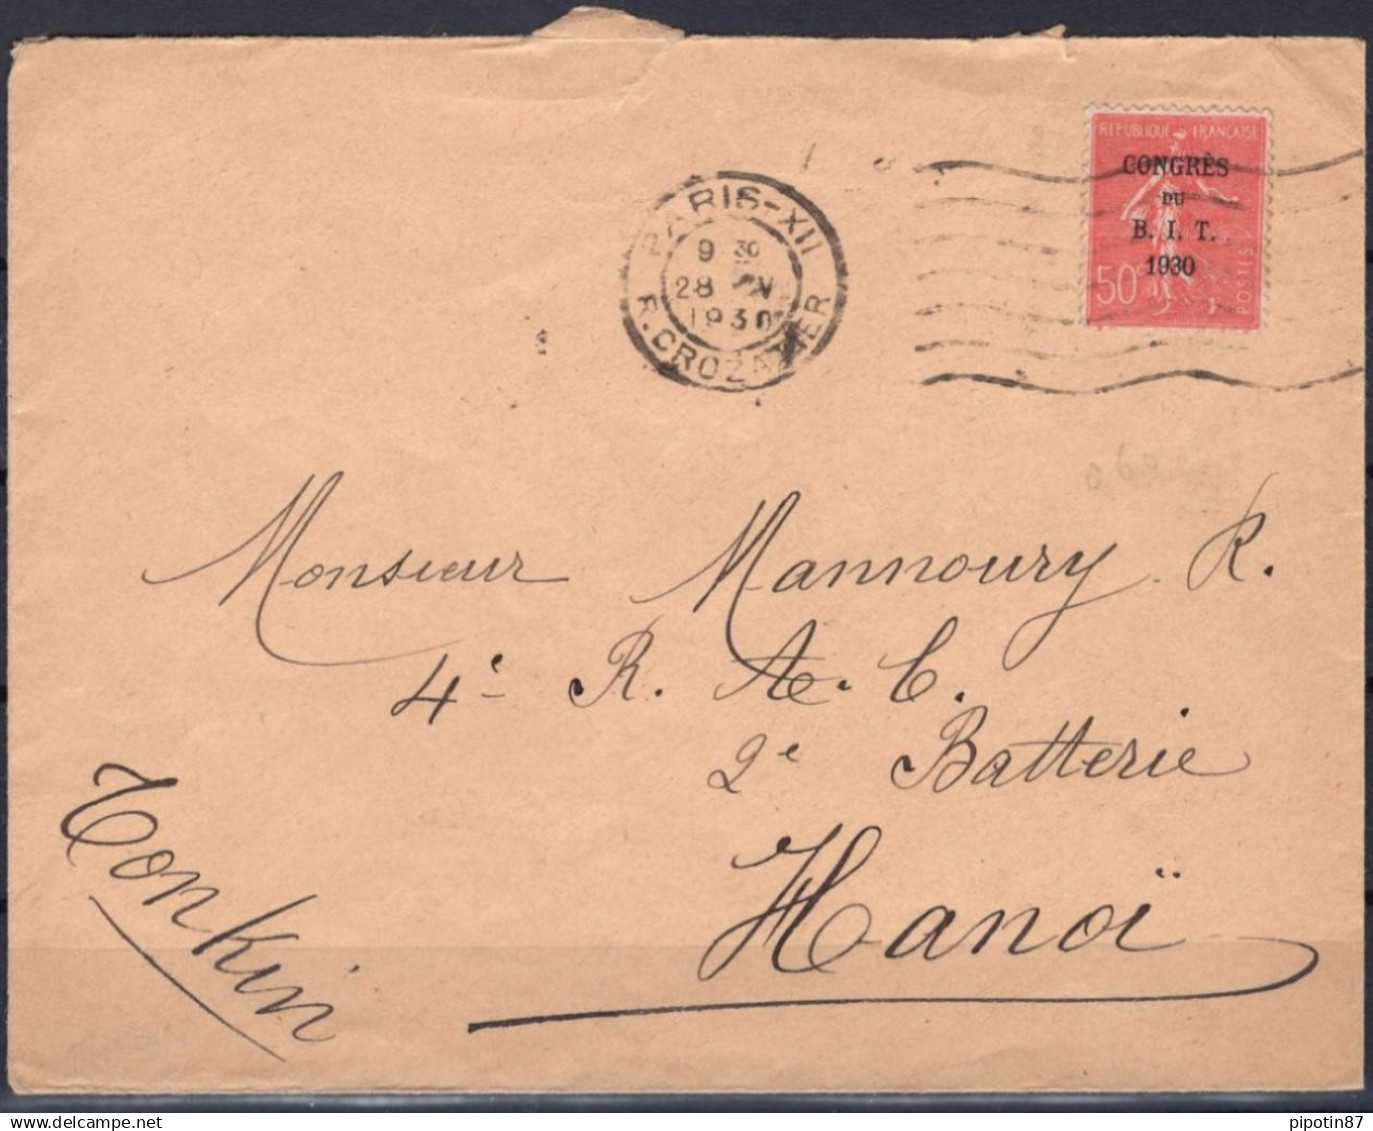 RÉPUBLIQUE FRANÇAISE
CONGRÈS
DU
B. I. T.
1930
50c
POSTES
PARIS-XII
9 30
28
1930
R. CROZATIER
060
Monsieur Mannoury R.
4e R. A. C.
2e Batterie
Hanoï
Tonkin
pipotin87